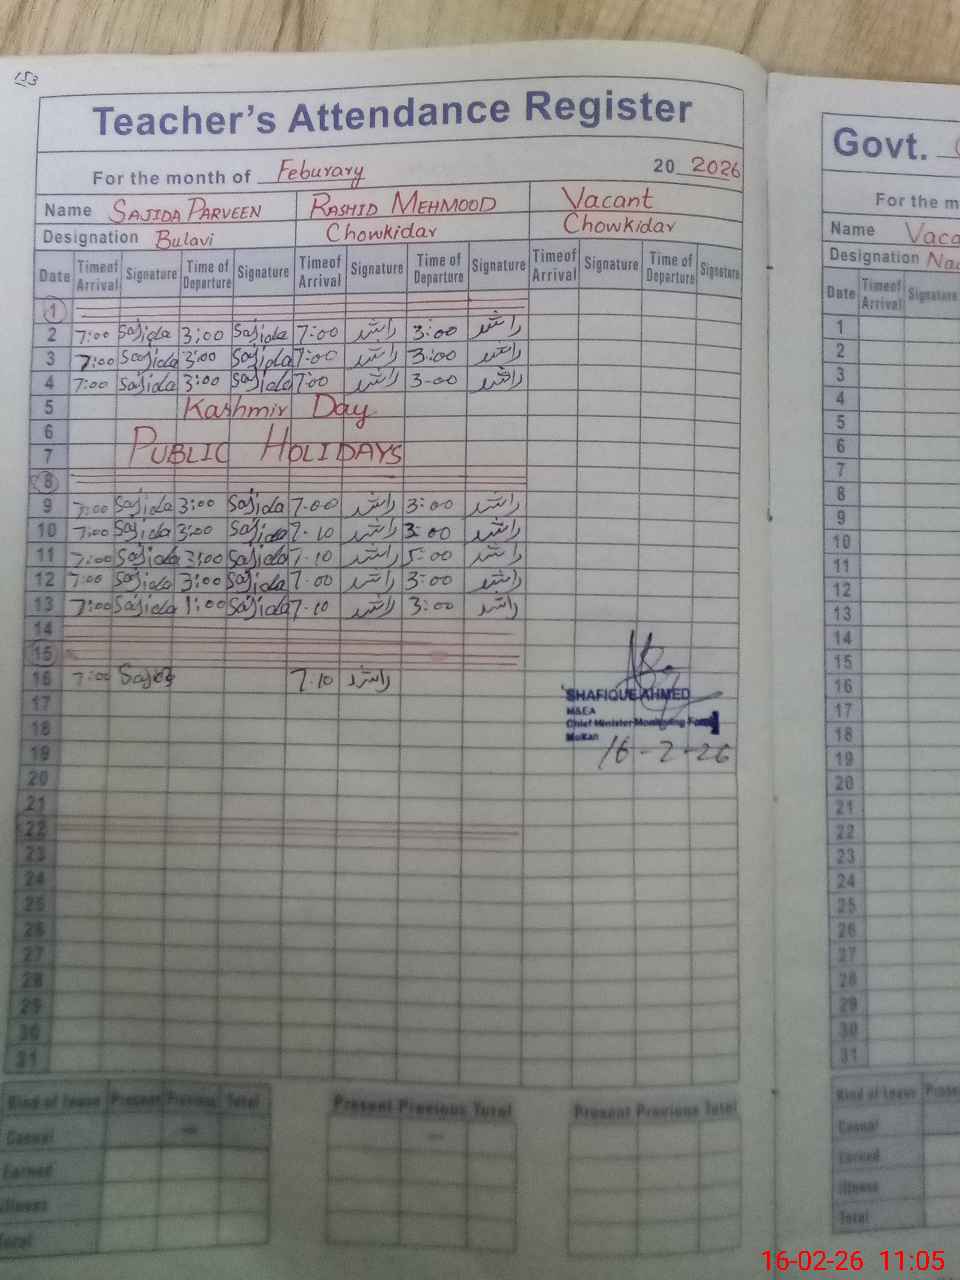 153
Teacher's Attendance Register
For the month of Feburary 20 2026
Name SAJIDA PARVEEN RASHID MEHMOOD Vacant
Designation Bulavi Chowkidar Chowkidar
Date Timeof Arrival Signature Time of Departure Signature Timeof Arrival Signature Time of Departure Signature Timeof Arrival Signature Time of Departure Signature
1
2 7:00 Sajida 3:00 Sajida 7:00 راشد 3:00 راشد
3 7:00 Sajida 3:00 Sajida 7:00 راشد 3:00 راشد
4 7:00 Sajida 3:00 Sajida 7:00 راشد 3-00 راشد
5 Kashmir Day
6
7 PUBLIC HOLIDAYS
8
9 7:00 Sajida 3:00 Sajida 7-00 راشد 3:00 راشد
10 7:00 Sajida 3:00 Sajida 7-10 راشد 3:00 راشد
11 7:00 Sajida 3:00 Sajida 7-10 راشد 5:00 راشد
12 7:00 Sajida 3:00 Sajida 7-00 راشد 3:00 راشد
13 7:00 Sajida 1:00 Sajida 7-10 راشد 3:00 راشد
14
15
16 7:00 7-10 راشد
17
18
19
20
21
22
23
24
25
26
27
28
29
30
31
SHAFIQUE AHMED
M&EA
Chief Minister Monitoring
16-2-26
Kind of Leave Present Previous Total Present Previous Total Present Previous Total
Casual
Earned
Illness
Total
Govt.
For the m
Name Vaca
Designation
Date Timeof Arrival Signature
1
2
3
4
5
6
7
8
9
10
11
12
13
14
15
16
17
18
19
20
21
22
23
24
25
26
27
28
29
30
31
Kind of Leave
Casual
Earned
Illness
Total
16-02-26 11:05